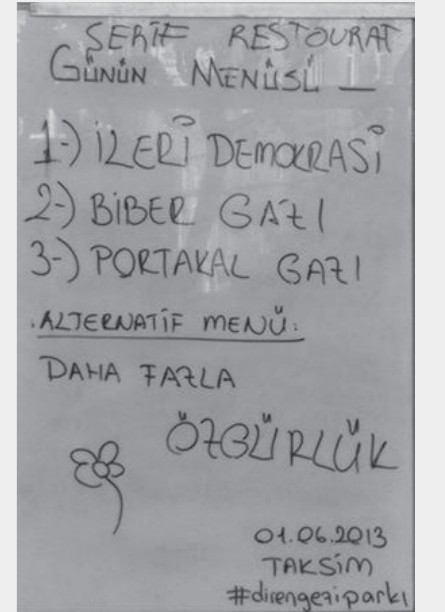 ŞERİF RESTOURAT
GÜNÜN MENÜSÜ
1-) İLERİ DEMOKRASİ
2-) BİBER GAZI
3-) PORTAKAL GAZI
.ALTERNATİF MENÜ:
DAHA FAZLA
ÖZGÜRLÜK
01.06.2013
TAKSİM
#direngeziparkı